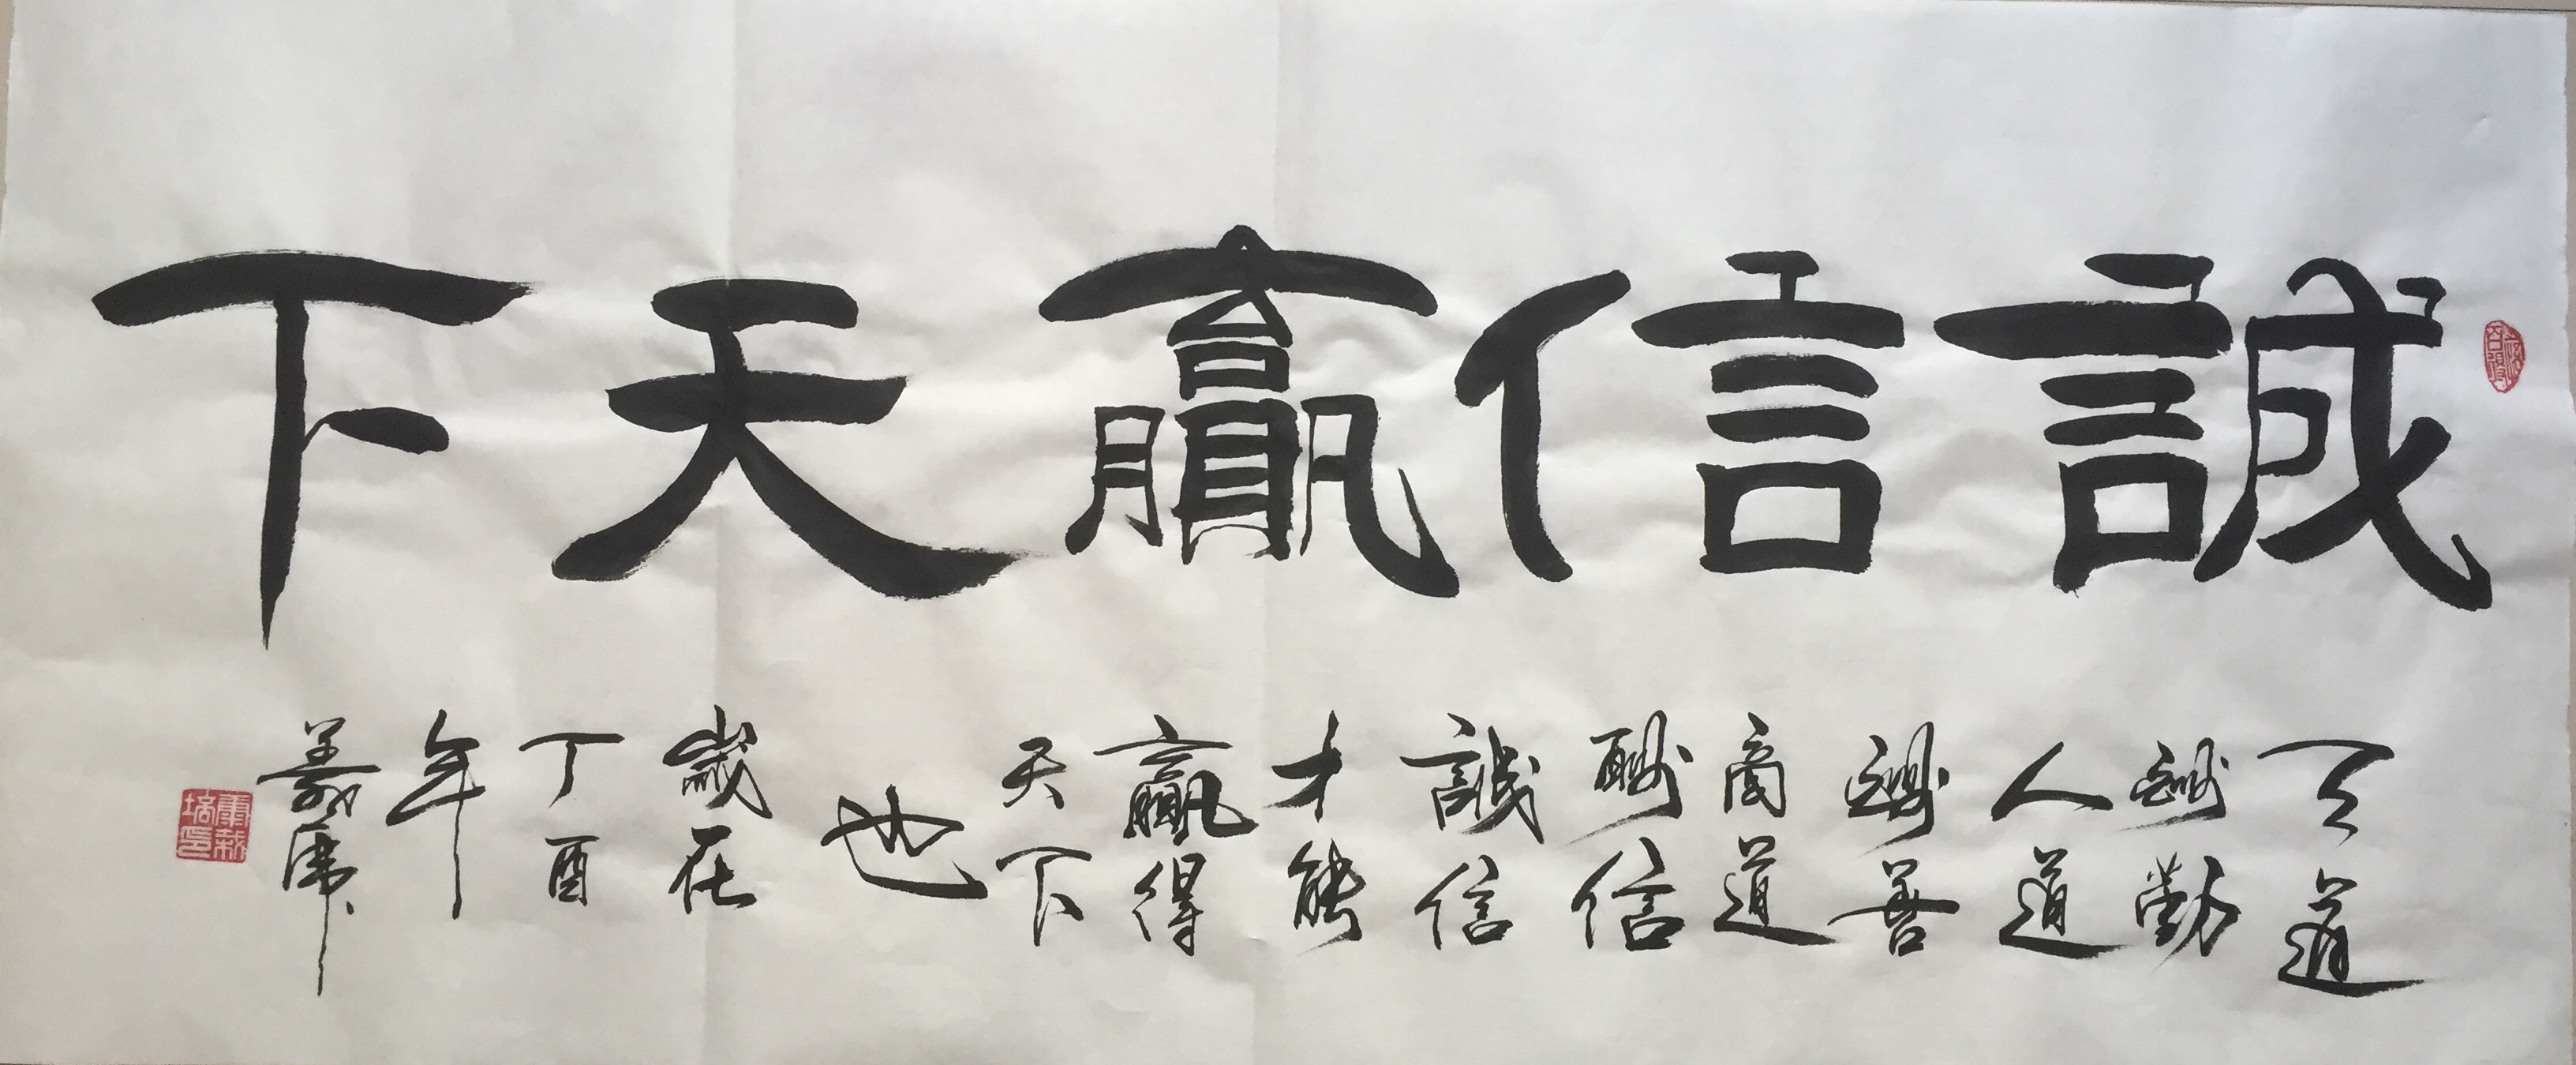 誠信贏天下
天道
酬勤
人道
酬善
商道
酬信
誠信
才能
贏得
天下
也
歲在
丁酉
年